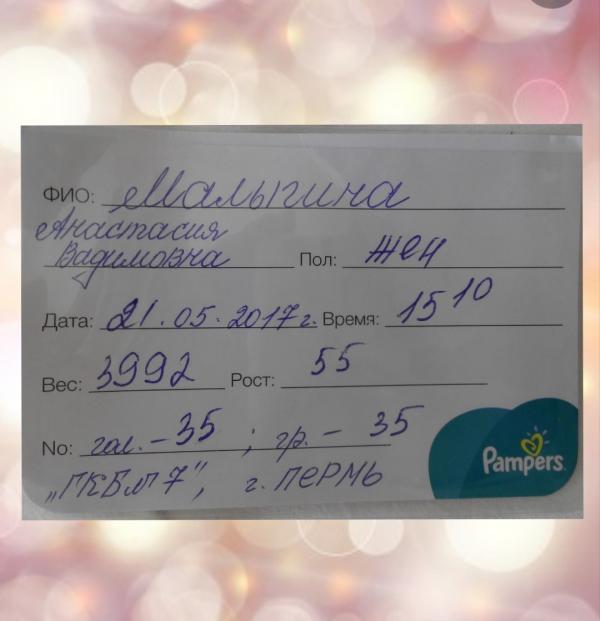 ФИО: Малыгина
Анастасия
Вадимовна Пол: Жен
Дата: 21.05.2017г. Время: 15 10
Вес: 3992 Рост: 55
No: гол. – 35 ; гр. – 35
„ГКБ№7", г. ПЕРМЬ
Pampers